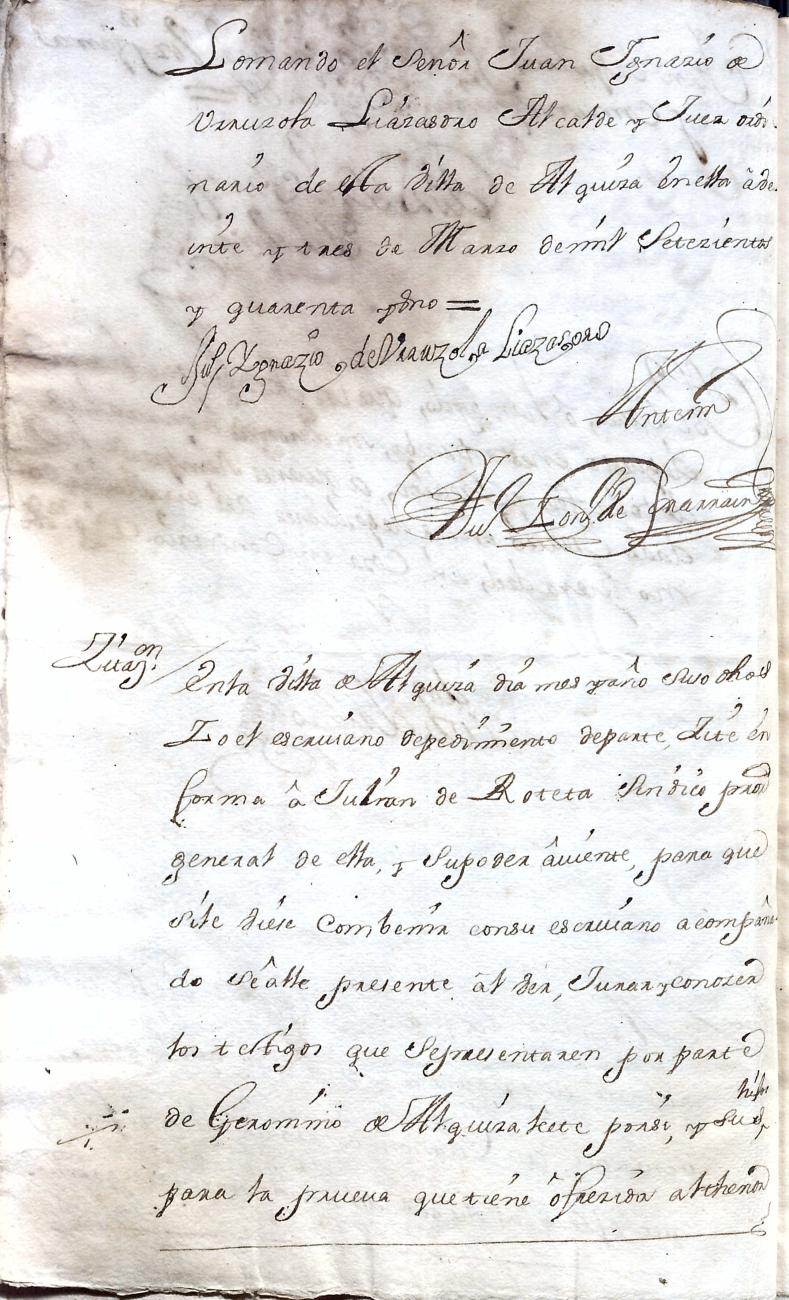 Lomando el señor Juan Ygnazio de
Urruzola Liazasoro Alcalde y Juez ordi-
nario de esta villa de Alquiza en ella a ve-
inte y tres de Marzo de mil Setezientos
y quarenta y uno =
Ju.n Ygnazio de Urruzola Liazasoro
Antemi
Zitaz.on
En la villa de Alquiza dia mes y año suso dhos
Yo el escriuano de pedimiento de parte, Zite en
forma a Julian de Roteta Sindico pror
general de ella, y su poder auiente, para que
si le diese combenir con su escriuano acompaña-
do se alle presente al ver, Jurar y conozer
los testigos que se presentaren por parte
de Geronimo de Alquizalete por si, y su
hijos
para la prueua que tiene ofrezida al thenor